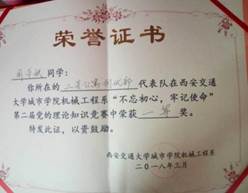 荣誉证书
同学:
你所在的 代表队在西安交通
大学城市学院机械工程系“不忘初心,牢记使命”
第二届党的理论知识竞赛中荣获 一等 奖。
特发此证,以资鼓励。
西安交通大学城市学院机械工程系
二〇一八年三月